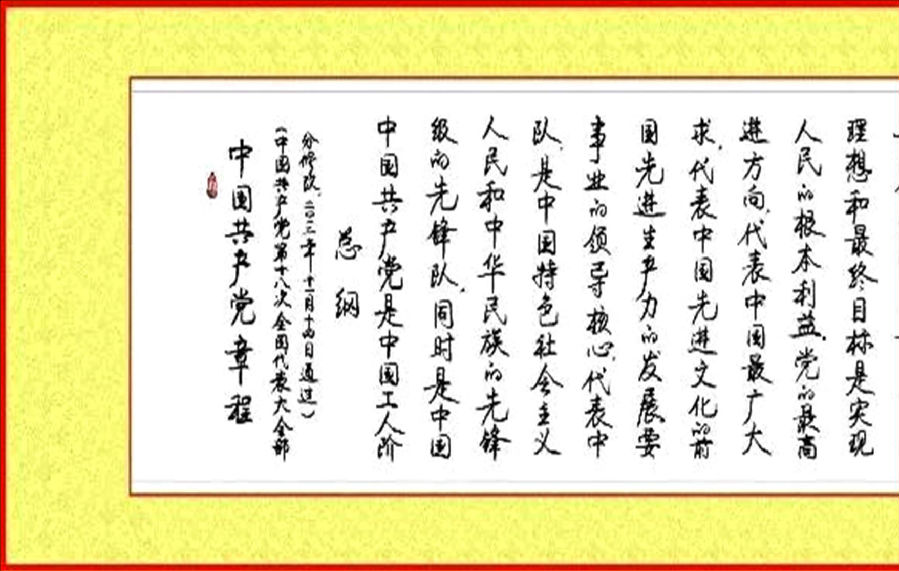 中国共产党章程
(中国共产党第十八次全国代表大会部
分修改,二〇一二年十一月十四日通过)
总纲
中国共产党是中国工人阶
级的先锋队,同时是中国
人民和中华民族的先锋
队,是中国特色社会主义
事业的领导核心,代表中
国先进生产力的发展要
求,代表中国先进文化的前
进方向,代表中国最广大
人民的根本利益。党的最高
理想和最终目标是实现